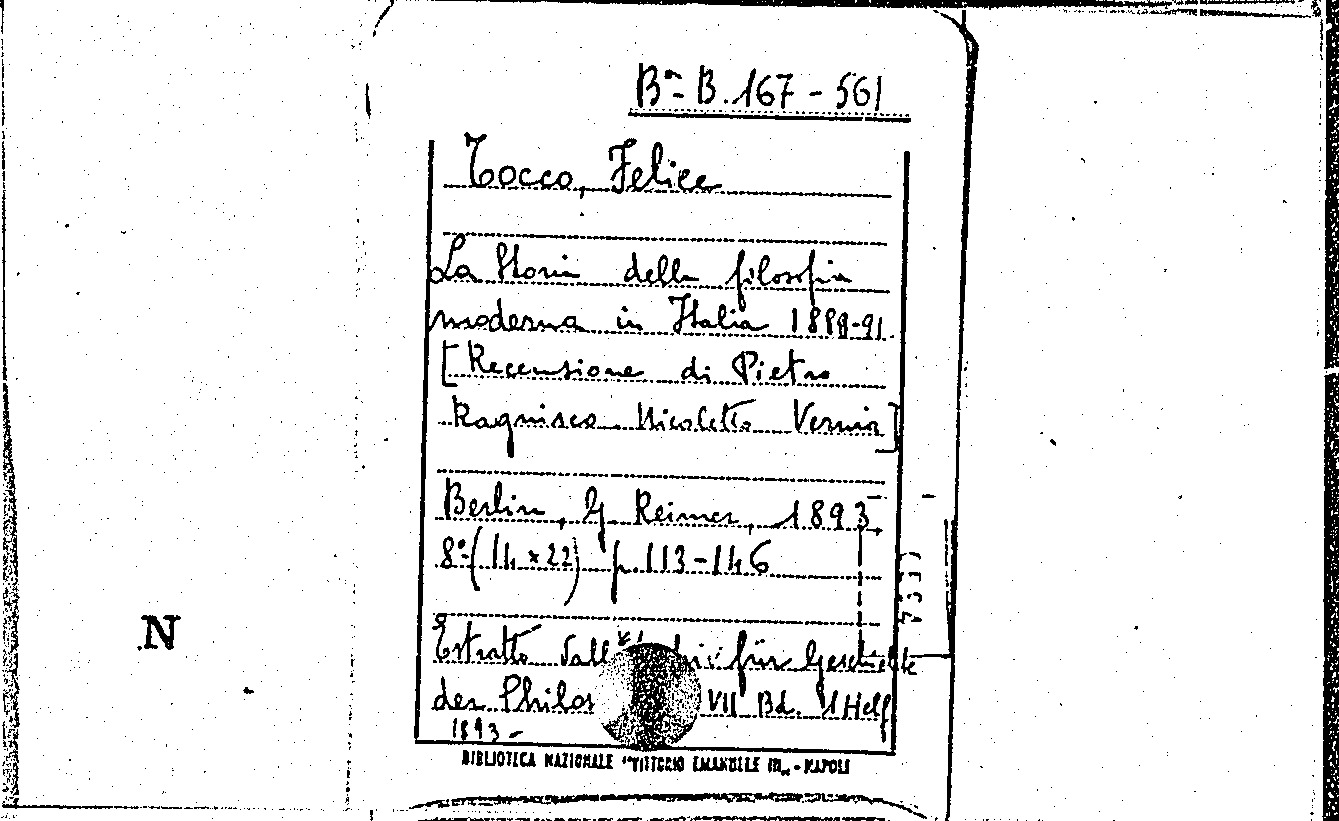 Bª- B. 167 - 561
Tocco, Felice
La Storia della filosofia
moderna in Italia 1888-91.
[Recensione di Pietro
Ragnisco. Nicoletto Vernia]
Berlin, G. Reimer, 1893.
8º-(14 x 22) p. 113-146
Estratto dall' für Geschichte
der VII Bd. 1 Helf
1893-
N
BIBLIOTECA NAZIONALE "VITTORIO EMANUELE III„ - NAPOLI